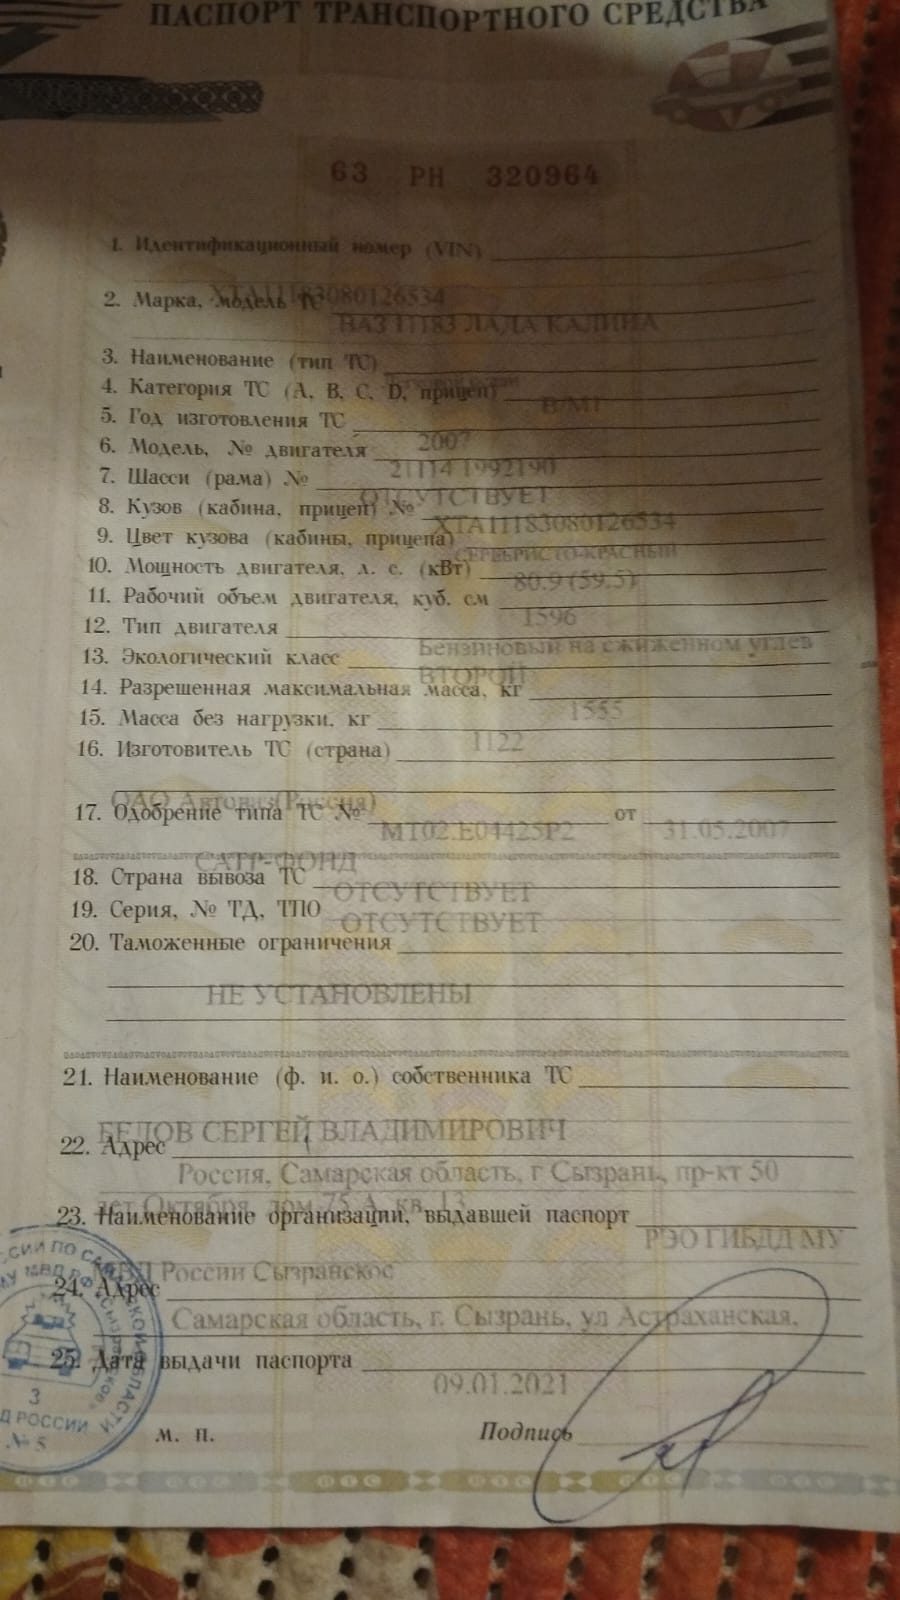 ПАСПОРТ ТРАНСПОРТНОГО СРЕДСТВА
63 РН 320964
1. Идентификационный номер (VIN)
ХТА11183080126534
2. Марка, модель ТС
ВАЗ 11183 ЛАДА КАЛИНА
3. Наименование (тип ТС)
4. Категория ТС (А, В, С, D, прицеп)
В/М1
5. Год изготовления ТС
2007
6. Модель, № двигателя
21114 1992190
7. Шасси (рама) №
ОТСУТСТВУЕТ
8. Кузов (кабина, прицеп) №
ХТА11183080126534
9. Цвет кузова (кабины, прицепа)
СЕРЕБРИСТО-КРАСНЫЙ
10. Мощность двигателя, л. с. (кВт)
80.9 (59.5)
11. Рабочий объем двигателя, куб. см
1596
12. Тип двигателя
Бензиновый на сжиженном углев
13. Экологический класс
ВТОРОЙ
14. Разрешенная максимальная масса, кг
1555
15. Масса без нагрузки, кг
1122
16. Изготовитель ТС (страна)
ОАО Автоваз(Россия)
17. Одобрение типа ТС № от
МТ02.Е04425Р2 31.05.2007
САТР-ФОНД
18. Страна вывоза ТС
ОТСУТСТВУЕТ
19. Серия, № ТД, ТПО
ОТСУТСТВУЕТ
20. Таможенные ограничения
НЕ УСТАНОВЛЕНЫ
21. Наименование (ф. и. о.) собственника ТС
БЕЛОВ СЕРГЕЙ ВЛАДИМИРОВИЧ
22. Адрес
Россия, Самарская область, г Сызрань, пр-кт 50
лет Октября, дом 75 А, кв. 13
23. Наименование организации, выдавшей паспорт
РЭО ГИБДД МУ
МВД России Сызранское
24. Адрес
Самарская область, г. Сызрань, ул Астраханская,
25. Дата выдачи паспорта
09.01.2021
м. п. Подпись
3
№ 5